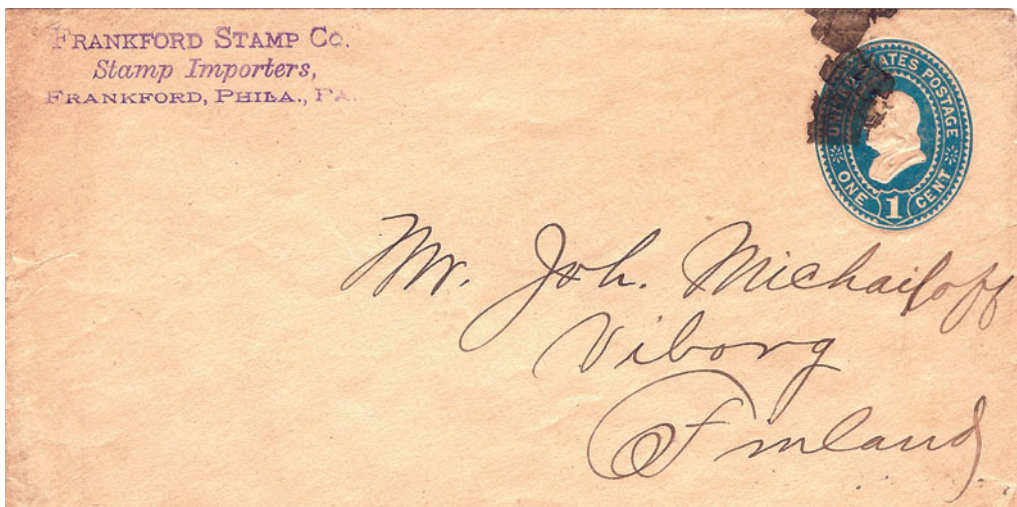 FRANKFORD STAMP CO.
Stamp Importers,
FRANKFORD, PHILA., PA.
UNITED STATES POSTAGE
ONE 1 CENT
Mr. Joh. Michailoff
Viborg
Finland